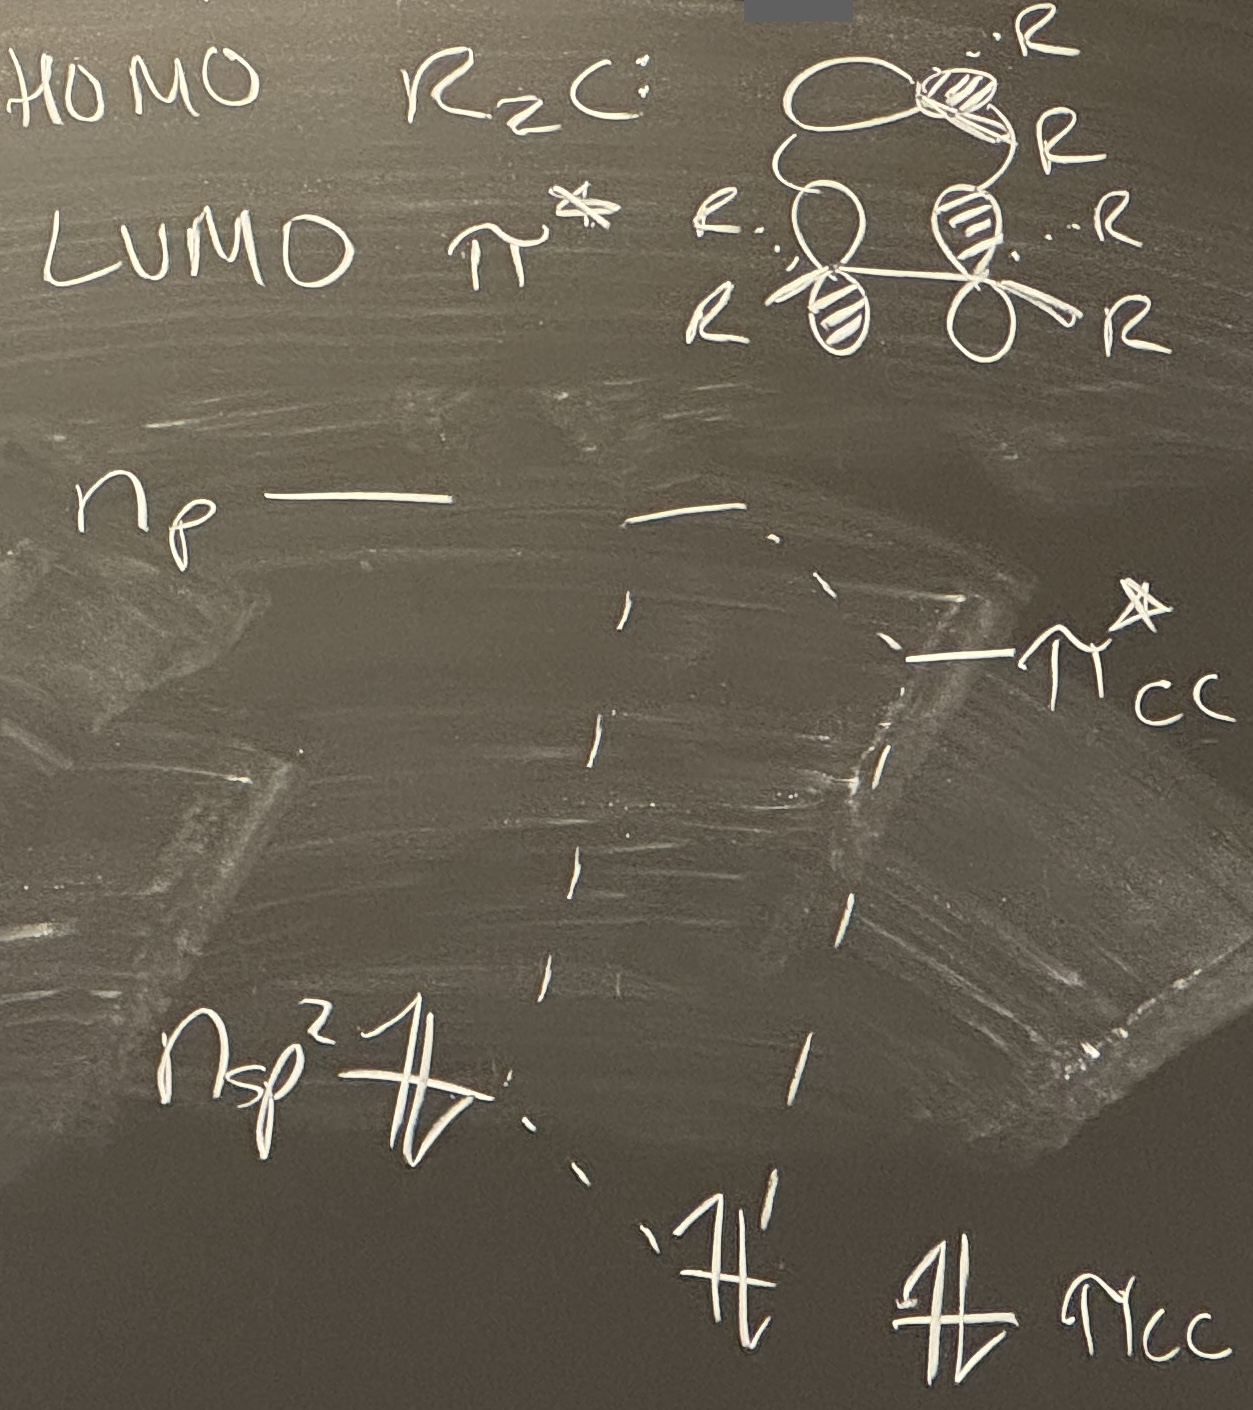 HOMO R₂C:
R
R
LUMO π*
R R
R R
nₚ
π*CC
nsp²
πCC